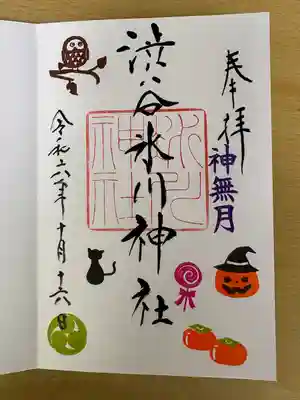 奉拝
神無月
渋谷氷川神社
氷川神社
令和六年十月十六日